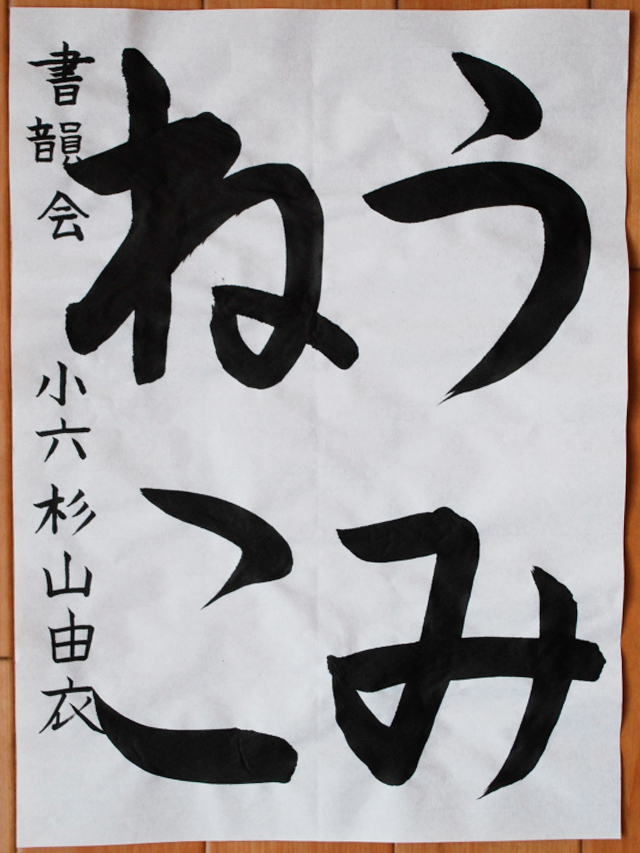 うみ
ねこ
書韻会 小六 杉山由衣